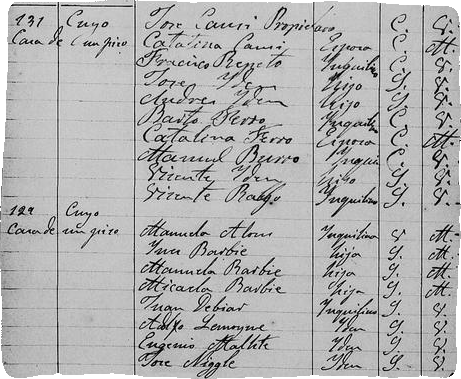 131 Cuyo Jose Cansi Propietario C. V.
Casa de 1 un piso Catalina Cansi Esposa C. M.
Francisco Repeto Inquilino C. V.
Jose Idem Hijo S. V.
Andres Idem Hijo S. V.
Barto Ferro Inquilino C. V.
Catalina Ferro Esposa C. M.
Manuel Burro Inquili C. V.
Vicente Idem hijo S. V.
Vicente Inquilino S. V.
129 Cuyo
Casa de un piso Manuela Inquilina V M.
Barbie hija S. M.
Manuela Barbie hija S. M.
Micaela Barbie hija S. M.
Juan Debiar Inquilino S. V.
Lemoyne Iden S. V.
Eugenio Iden S. V.
Jose Niggle Iden S. V.